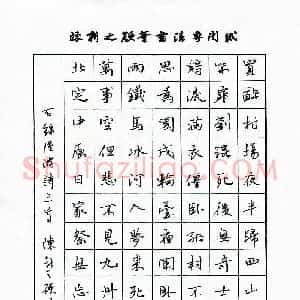 陳新之硬筆書法專用紙
買醉村場夜半歸西山
柴扉劉琨死後無奇士
滿衣僵卧孤村不
思為國戍輪臺夜闌卧
雨鐵馬冰河入夢來死
萬事空但悲不見九州
北定中原日家祭無忘
右錄陸游詩三首 陳新之
Shufaziliao.com